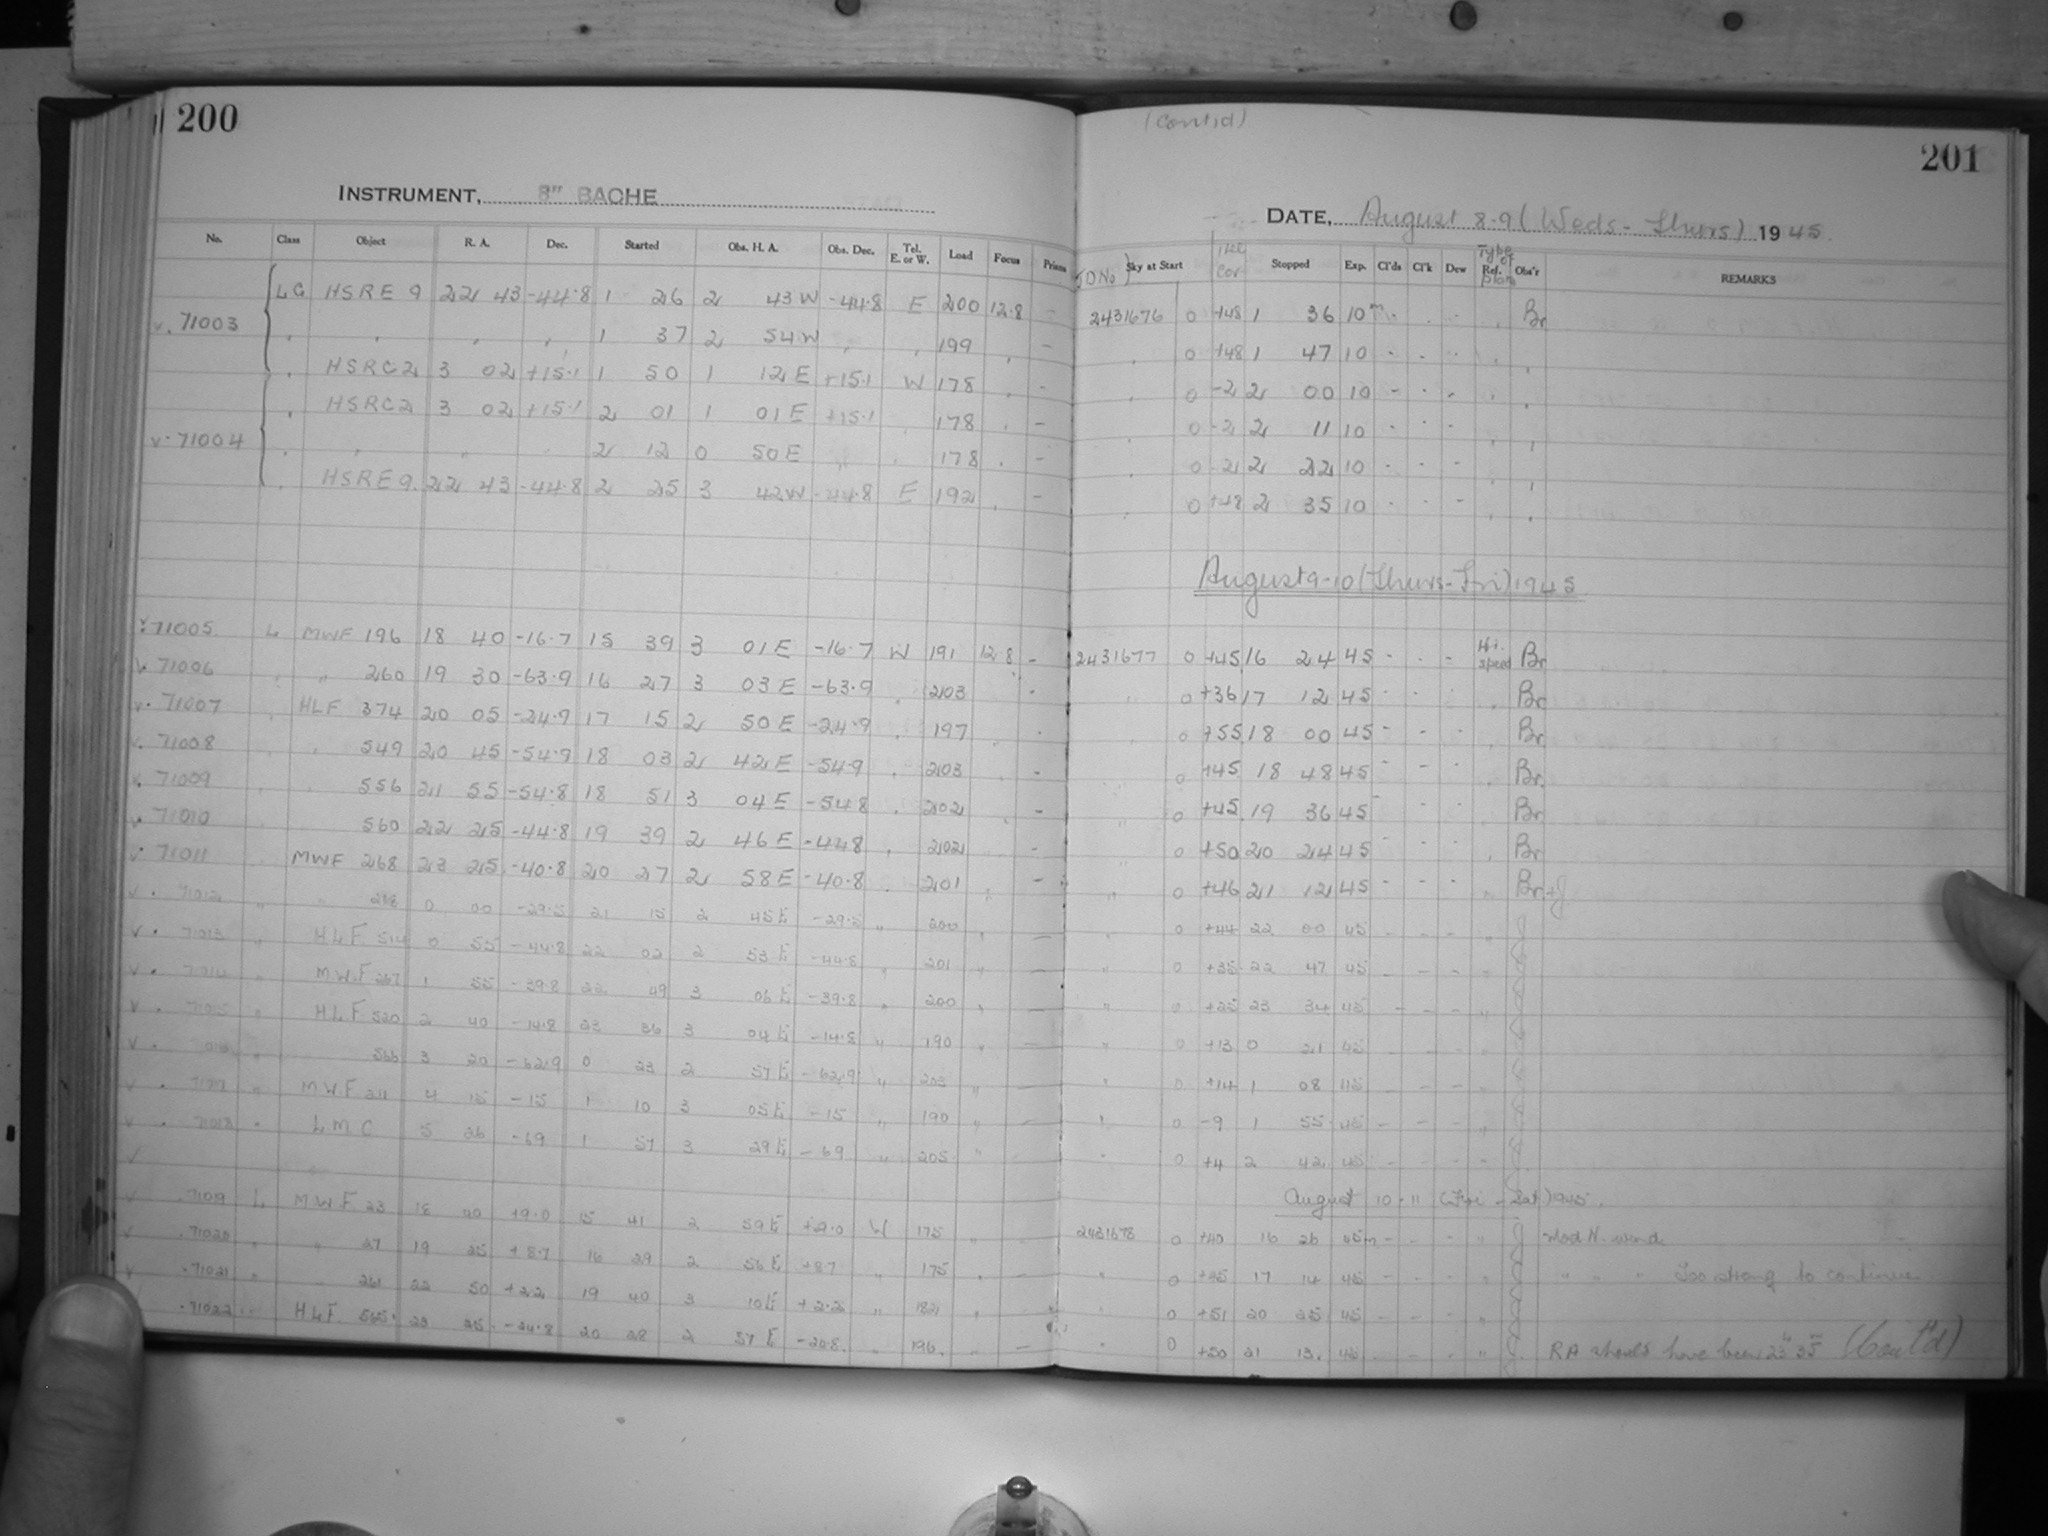 200
INSTRUMENT, 8" BACHE
No. Class Object R. A. Dec. Started Obs. H. A. Obs. Dec. Tel. E. or W. Load Focus Prisms
LG HSRE 9 22 43 -44.8 1 26 2 43 W -44.8 E 200 12.8 -
v. 71003 " " " " 1 37 2 54 W " " 199 " -
" HSRC 2 3 02 +15.1 1 50 1 12 E +15.1 W 178 " -
" HSRC 2 3 02 +15.1 2 01 1 01 E +15.1 " 178 " -
v. 71004 " " " " 2 12 0 50 E " " 178 " -
" HSRE 9 22 43 -44.8 2 25 3 42 W -44.8 E 192 " -
v. 71005 L MWF 196 18 40 -16.7 15 39 3 01 E -16.7 W 191 12.8 -
v. 71006 " " 260 19 30 -63.9 16 27 3 03 E -63.9 " 203
v. 71007 " HLF 374 20 05 -24.9 17 15 2 50 E -24.9 " 197
v. 71008 " " 549 20 45 -54.9 18 03 2 42 E -54.9 " 203 -
v. 71009 " " 556 21 55 -54.8 18 51 3 04 E -54.8 " 202 -
v. 71010 560 22 25 -44.8 19 39 2 46 E -44.8 " 202 -
v. 71011 MWF 268 23 25 -40.8 20 27 2 58 E -40.8 " 201 " -
v. 71012 " " 0 00 -29.5 21 15 2 45 E -29.5 " 200 " -
v. 71013 " HLF 514 0 55 -44.8 22 02 2 53 E -44.8 " 201 " -
v. 71014 " M.W.F 267 1 55 -39.8 22 49 3 06 E -39.8 " 200 " -
v. 71015 " HLF 520 2 40 -14.8 23 36 3 04 E -14.8 " 190 " -
v. 3 20 -62.9 0 23 2 57 E -62.9 " 203 "
v. " M.W.F 4 15 -15 1 10 3 05 E -15 " 190 " -
v. 71018 " LMC 5 26 -69 1 57 3 29 E -69 " 205 " -
v L M.W.F 23 18 40 15 41 2 59 E W 175 " -
v .71020 " " 27 19 25 +8.7 16 29 2 56 E +8.7 " 175 " -
v .71021 " 261 22 50 +2.2 19 40 3 10 E +2.2 " 182 "
v .71022 " HLF 565 23 25 20 28 2 57 E " 196 " -
(Cont'd)
201
DATE, August 8-9 (Weds - Thurs) 1945
(JD No) Sky at Start Cor Stopped Exp. Cl'ds Cl'k Dew Type of Ref. plate Obs'r REMARKS
2431676 0 +48 1 36 10m - - - " Br
" 0 +48 1 47 10 - - - " "
" 0 -2 2 00 10 - - - " "
" 0 -2 2 11 10 - - - " "
" 0 -2 2 22 10 - - - " "
" 0 +48 2 35 10 - - - " "
August 9-10 (Thurs - Fri) 1945
2431677 0 +45 16 24 45 - - - Hi. speed Br
" 0 +36 17 12 45 - - - " Br
0 +55 18 00 45 - - - " Br
0 +45 18 48 45 - - - Br.
" 0 +45 19 36 45 - - - Br
0 +50 20 24 45 - - - " Br
" 0 +46 21 12 45 - - - " Br + J
" 0 +44 22 00 45 - - - " J
" 0 +35 22 47 45 - - - " J
" 0 +25 23 34 45 - - - " J
" 0 +13 0 21 45 - - - " J
" 0 +14 1 08 45 - - - " J
" 0 -9 1 55 45 - - - " J
" 0 +4 2 42 45 - - - J
August 10-11 (Fri - Sat) 1945.
2431678 0 +40 16 26 45m - - - " J Mod N. wind
" 0 +45 17 14 45 - - - " J " " " Too strong to continue
" 0 +51 20 25 45 - - - " J
" 0 +50 21 13 45 - - - " J RA should have been 23h 35m (Cont'd)